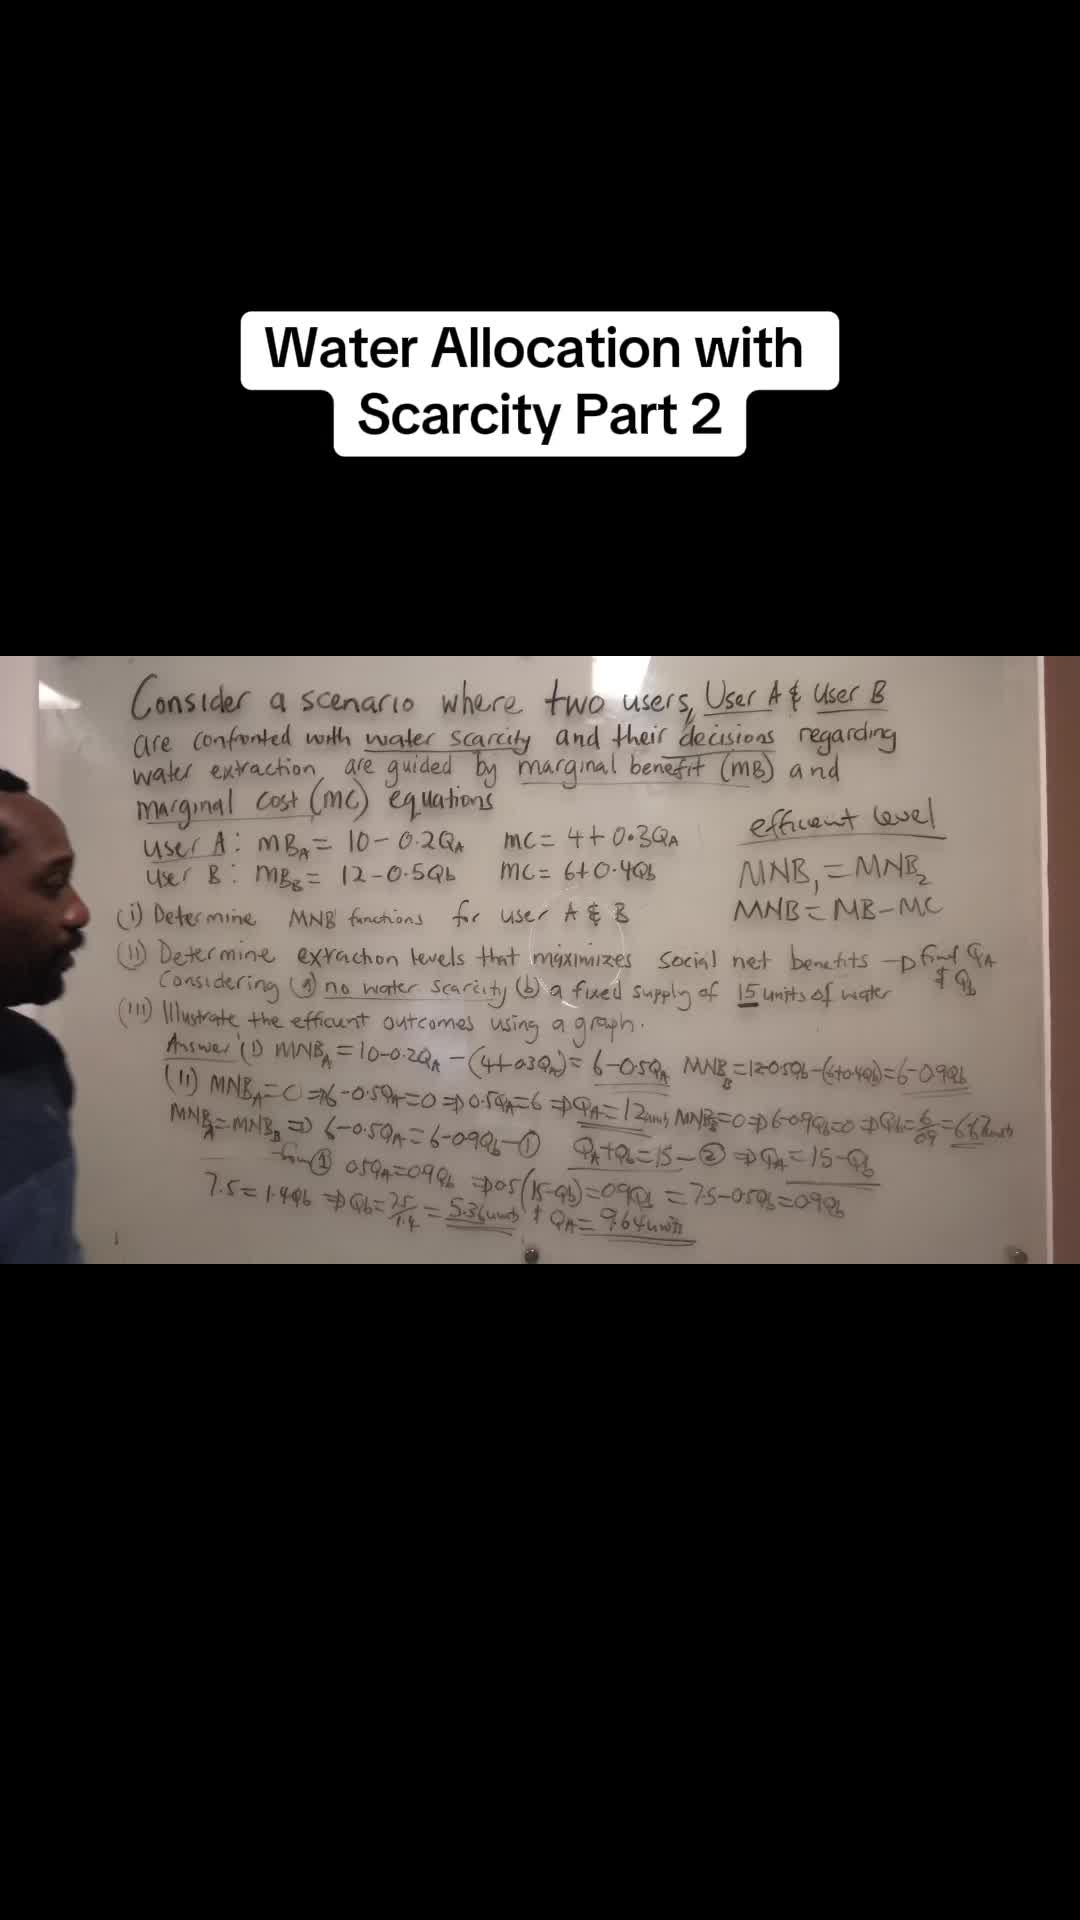 Water Allocation with
Scarcity Part 2
Consider a scenario where two users, User A & User B
are confronted with water scarcity and their decisions regarding
water extraction are guided by marginal benefit (MB) and
marginal cost (MC) equations
efficient level
user A: MB_A = 10 - 0.2Q_A MC = 4 + 0.3Q_A
User B: MB_B = 12 - 0.5Qb MC = 6 + 0.4Qb
MNB₁ = MNB₂
MNB = MB - MC
(i) Determine MNB functions for user A & B
(ii) Determine extraction levels that maximizes social net benefits → find Q_A & Qb
Considering (a) no water scarcity (b) a fixed supply of 15 units of water
(iii) Illustrate the efficient outcomes using a graph.
Answer (i) MNB_A = 10 - 0.2Q_A - (4 + 0.3Q_A) = 6 - 0.5Q_A MNB_B = 12 - 0.5Qb - (6 + 0.4Qb) = 6 - 0.9Qb
(ii) MNB_A = 0 ⇒ 6 - 0.5Q_A = 0 ⇒ 0.5Q_A = 6 ⇒ Q_A = 12 units MNB_B = 0 ⇒ 6 - 0.9Qb = 0 ⇒ Qb = 6/0.9 = 6.67 units
MNB_A = MNB_B ⇒ 6 - 0.5Q_A = 6 - 0.9Qb - ① Q_A + Qb = 15 - ② ⇒ Q_A = 15 - Qb
from ① 0.5Q_A = 0.9Qb ⇒ 0.5(15 - Qb) = 0.9Qb = 7.5 - 0.5Qb = 0.9Qb
7.5 = 1.4Qb ⇒ Qb = 7.5/1.4 = 5.36 units & Q_A = 9.64 units